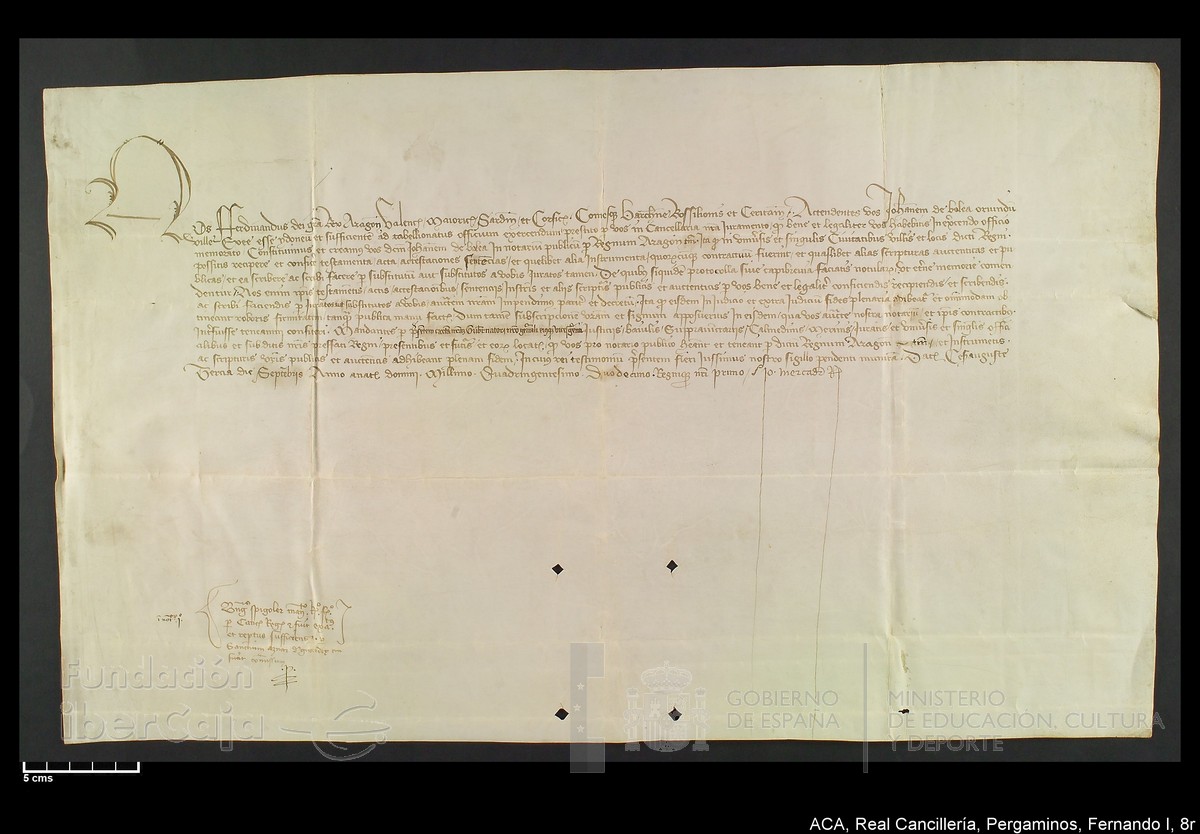 Nos Ferdinandus dei gra Rex Aragon Valent Maioric Sardin et Corsice Comesq Barchne Rossilionis et Ceritan Attendentes vos Johanem de balea oriundu
ville Sore esse ydoneu et sufficiente ad tabellionatus officium exercendum prestito p vos in Cancellaria nra Iuramento q bene et legaliter vos habebitis In exercendo officio
memorato Constituimus et creamus vos dem Johanem de balea In notariu publicu p Regnum Aragon Ita q in univsis et singulis Civitatibus villis et locis dicti Regni
possitis recipere et conficere testamenta acta attestationes sentencias et quelibet alia Instrumenta quorumcuq contractuu fuerint et quaslibet alias scripturas autenticas et pu
blicas et ea scribere ac scribi facere p substitutu aut substitutos a vobis Iuratos tamen De quibus siquidem protocolla sive capibrevia faciatis notularu que eterne memorie comen
dentur Nos enim ipis testamentis actis attestationibus sentenciis Instris et aliis scripturis publicis et autenticis p vos bene et legaliter conficiendis recipiendis et scribendis
ac scribi faciendis p substitutos a vobis auctem nram Impendimus pariter et decretu Ita q eisdem in Iudicio et extra Iudiciu fides plenaria adhibeat et omnimodam ob
tineant roboris firmitatem tanq publica manu facta Dum tamen subscripcione vram et signum apposueritis In eisdem qua vos aucte nostra notariu et ipis contractibus
Interfuisse teneamini confiteri Mandantes p Gubernatori Justiciis baiulis Suppraiunctariis Calmedinis Merinis Juratis et univsis et singulis offici
alibus et subditis nris prefati Regni presentibus et futuris et eoru locatenentibus q vos pro notario publico habeant et teneant p dictu Regnum Aragon et instrumentis
ac scripturis vris publicis et autenticis adhibeant plenam fidem In cuius rei testimoniu psentem fieri Iussimus nostro sigillo pendenti munita Dat Cesarauguste
Tercia die Septembris Anno a nat domini Millimo Quadringentesimo Duodecimo Regniq nri primo
Bngr spigoler
GOBIERNO DE ESPAÑA
MINISTERIO DE EDUCACIÓN, CULTURA Y DEPORTE
Fundación
iberCaja
5 cms
ACA, Real Cancillería, Pergaminos, Fernando I, 8r